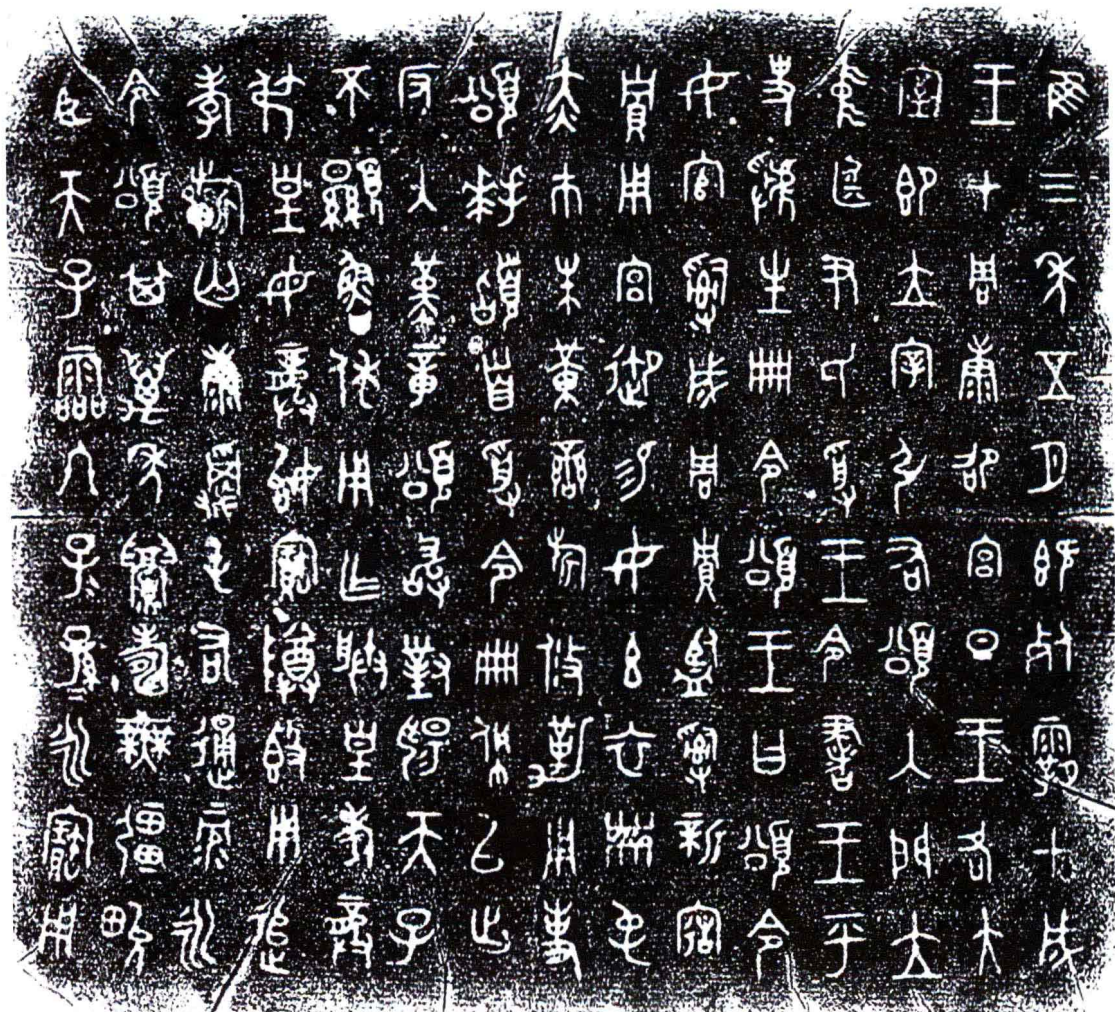 隹三年五月既死霸甲戌
王才周康卲宮旦王各大
室即立宰引右頌入門立
中廷尹氏受王令書王乎
史虢生冊令頌王曰頌令
女官𤔲成周貯監𤔲新造
貯用宮御易女玄衣黹屯
赤巿朱黃䜌旂攸勒用事
頌拜𩒨首受令冊佩以出
反入堇章頌敢對揚天子
不顯魯休用乍朕皇考龏
弔皇母龏始寶尊簋用追
孝祈匄康𩛥屯右通彔永
令頌其萬年眉壽無疆畯
臣天子霝冬子孫永寶用